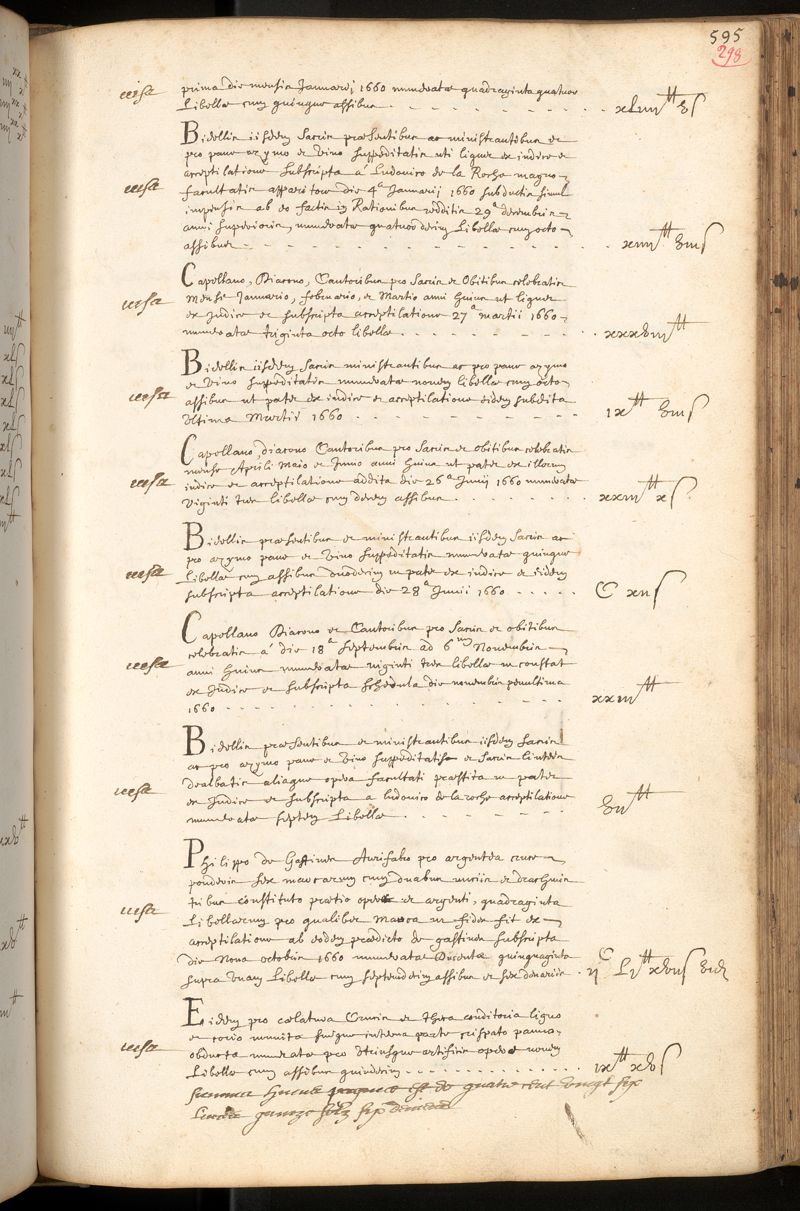 595
298
visa prima die mensis Januarij 1660 numeratæ quadraginta quatuor
Libellæ cum quinque assibus xLiiii tt v s
Bidellis iisdem Sacris præsentibus ac ministrantibus et
pro pane azymo et vino suppeditatis uti liquet ex indice et
visa acceptilatione subscripta a Ludovico de la Roche magno
facultatis apparitore die 4a Januarij 1660 subductis simul
impensis ab eo factis in Rationibus redditis 29a decembris
anni superioris, numeratæ quatuordecim Libellæ cum octo
assibus xiiii tt viii s
Capellano, Diacono, Cantoribus pro Sacris et Obitibus celebratis
visa Mense Januario, februario, et Martio anni huius ut liquet
ex Indice et subscripta acceptilatione 27a martii 1660
numeratæ triginta octo libellæ xxxviii tt
Bidellis iisdem Sacris ministrantibus ac pro pane azymo
et vino suppeditatis numeratæ novem libellæ cum octo
visa assibus ut patet ex indice et acceptilatione eidem subdita
ultima Martii 1660 ix tt viii s
Capellano, diacono Cantoribus pro Sacris et obitibus celebratis
mense Aprili Maio et Junio anni huius ut patet ex illorum
visa indice et acceptilatione addita die 26a Junij 1660 numeratæ
viginti tres libellæ cum decem assibus xxiii tt x s
Bidellis præsentibus et ministrantibus iisdem Sacris ac
pro azymo pane et vino suppeditatis numeratæ quinque
visa Libellæ cum assibus duodecim ut patet ex indice et eidem
subscripta acceptilatione die 28a Junii 1660 C xii s
Capellano Diacono et Cantoribus pro Sacris et obitibus
celebratis à die 18a septembris ad 6um Novembris
visa anni huius numeratæ viginti tres libellæ ut constat
ex Indice et subscripta schedula die novembris penultima
1660 xxiii tt
Bidellis præsentibus et ministrantibus iisdem Sacris
ac pro azymo pane et vino suppeditatis et Sacris linteis
visa dealbatis aliaque opera facultati præstita ut patet
ex Indice et subscripta a ludovico de la roche acceptilatione
numeratæ septem Libellæ vii tt
Philippo de Gastines Aurifabro pro argentea cruce
ponderis sex marcarum cum duabus unciis et drachmis
tribus constituto prætio operæ et argenti, quadraginta
visa Libellarum pro qualibet Marca ut fides fit ex
acceptilatione ab eodem prædicto de gastines subscripta
die Nona octobris 1660 numeratæ Ducentæ quinquaginta
supra unam Libellæ cum septemdecim assibus et sex denariis ii C Li tt xvii s vi d
Eidem pro cælatura Crucis et theca conditoria ligno
et corio munita suaque interna parte crispato panno
visa obducta numeratæ pro utriusque artificis opere novem
Libellæ cum assibus quindecim ix tt xv s
Summa huius paginæ est de quatre cent vingt six
Livres quinze solz six deniers